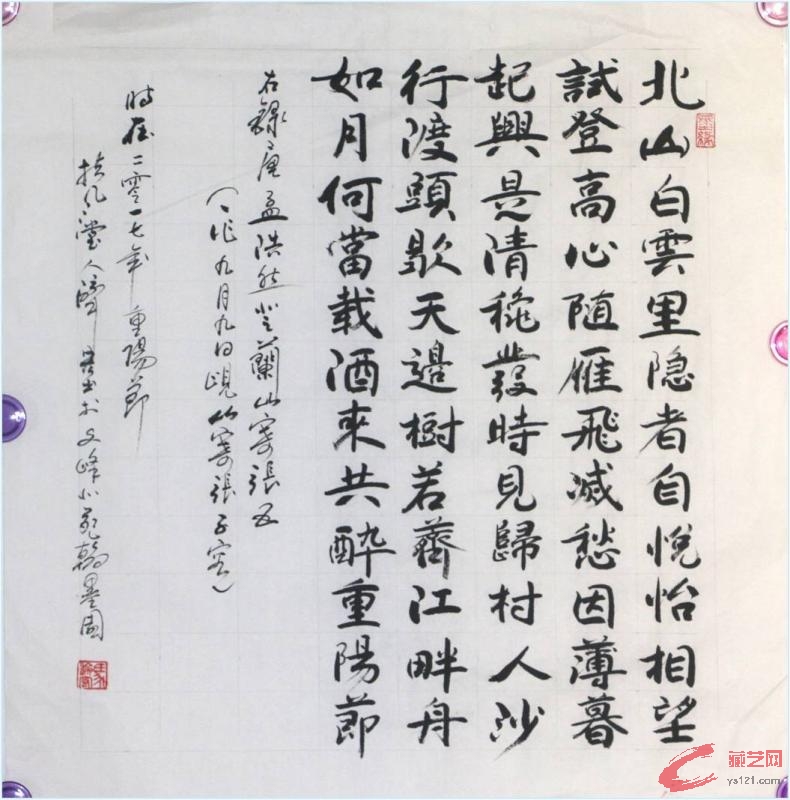 北山白雲里隐者自悅怡相望
試登高心随雁飛滅愁因薄暮
起興是清穐發時見歸村人沙
行渡頭歇天邊樹若薺江畔舟
如月何當载酒來共醉重陽節
右錄唐孟浩然登蘭山寄張五
(一作九月九日峴山寄張子容)
時在二零一七年重陽節
堂人 書於文峰小苑翰墨園
藏艺网
ys121.com